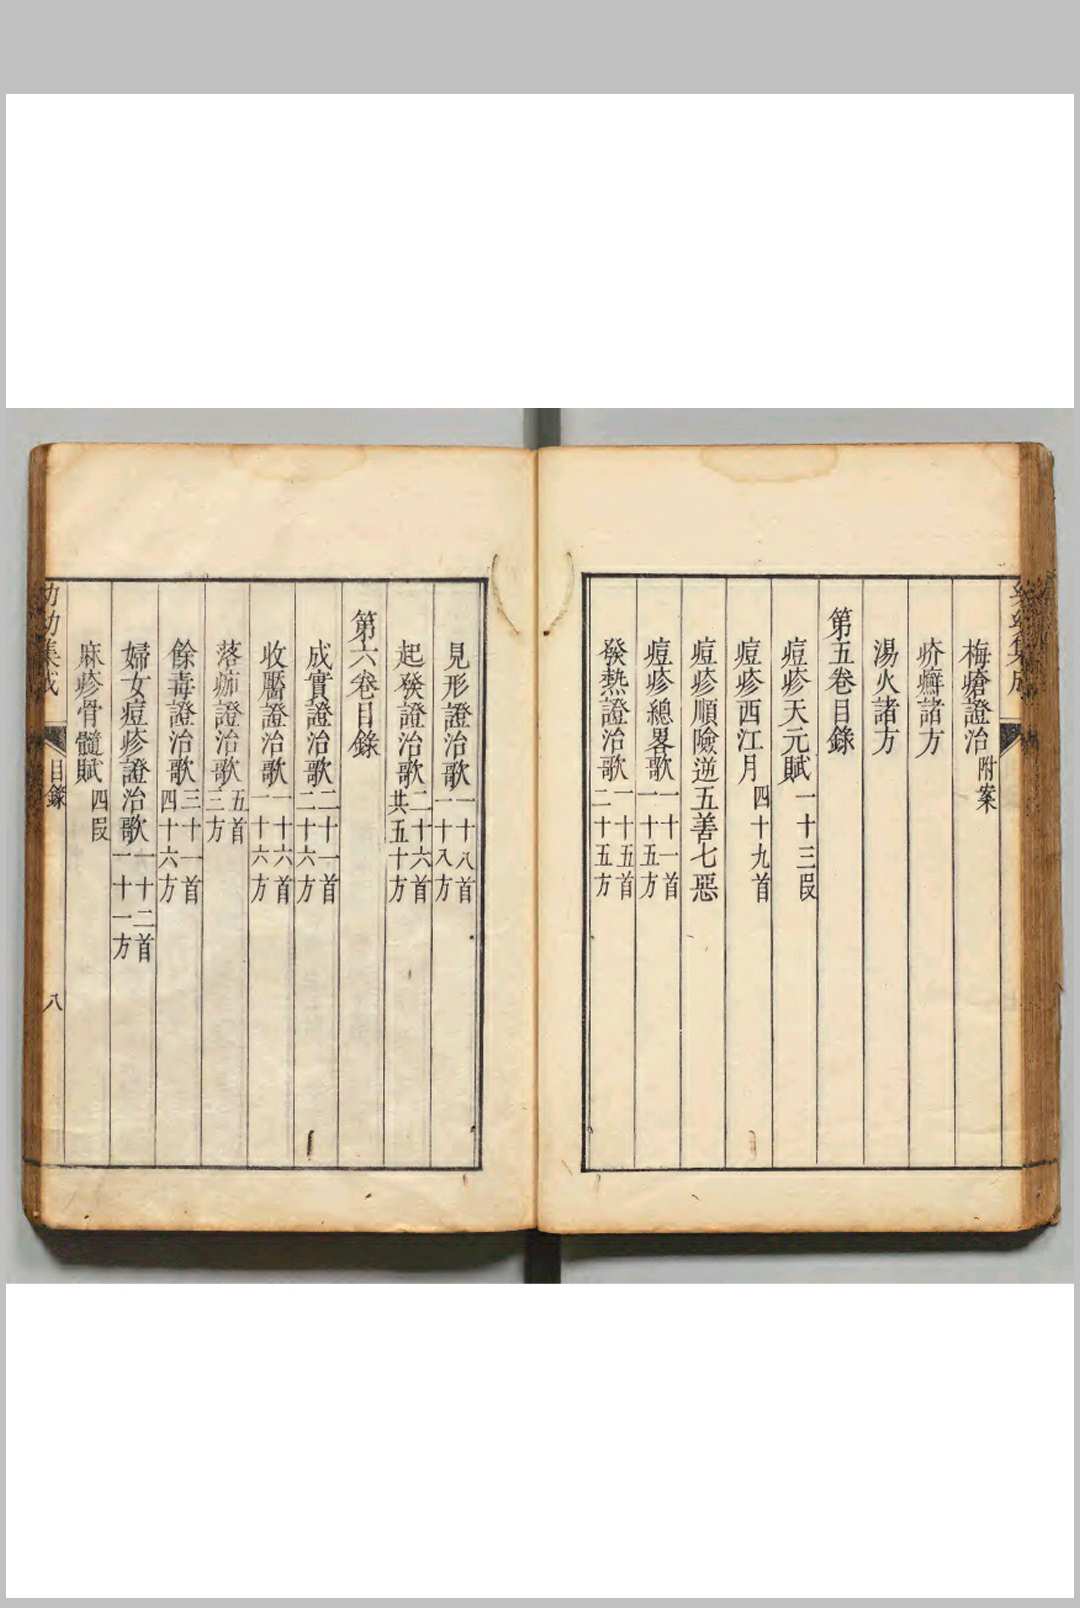 梅瘡證治附案
疥癬諸方
湯火諸方
第五卷目錄
痘疹天元賦一十三段
痘疹西江月四十九首
痘疹順險逆五善七惡
痘疹總畧歌一十一首一十五方
發熱證治歌一十五首二十五方
見形證治歌一十八首一十八方
起發證治歌二十六首共五十方
第六卷目錄
成實證治歌二十一首二十六方
收靨證治歌一十六首一十六方
落痂證治歌五首三方
餘毒證治歌三十一首四十六方
婦女痘疹證治歌一十二首一十一方
麻疹骨髓賦四段
幼幼集成 目錄 八